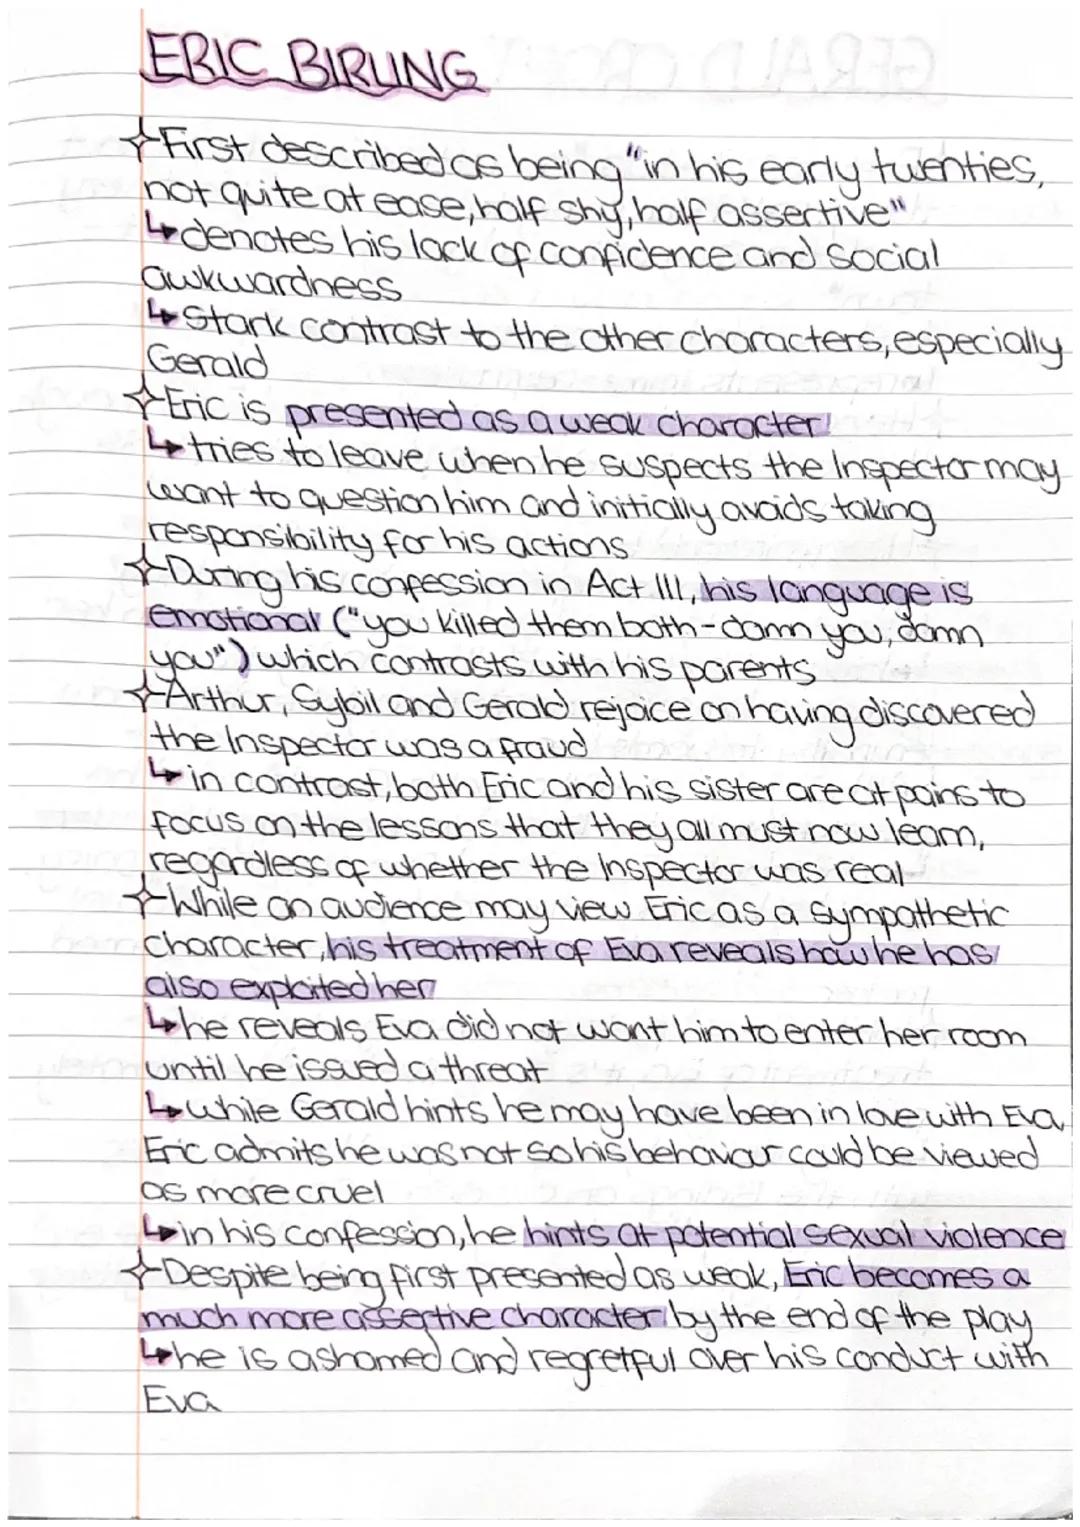 ERIC BIRLING
First described as being "in his early twenties,
not quite at ease, half shy, half assertive"
↳ denotes his lack of confidence and social
awkwardness
↳ Stark contrast to the other characters, especially
Gerald
Eric is presented as a weak character
↳ tries to leave when he suspects the Inspector may
want to question him and initially avoids taking
responsibility for his actions
During his confession in Act III, his language is
emotional ("you killed them both - damn you, damn
you") which contrasts with his parents
Arthur, Sybil and Gerald rejoice on having discovered
the Inspector was a fraud
↳ in contrast, both Eric and his sister are at pains to
focus on the lessons that they all must now learn,
regardless of whether the Inspector was real
While an audience may view Eric as a sympathetic
character, his treatment of Eva reveals how he has
also exploited her
↳ he reveals Eva did not want him to enter her room
until he issued a threat
↳ while Gerald hints he may have been in love with Eva,
Eric admits he was not so his behaviour could be viewed
as more cruel
↳ in his confession, he hints at potential sexual violence
Despite being first presented as weak, Eric becomes a
much more assertive character by the end of the play
↳ he is ashamed and regretful over his conduct with
Eva